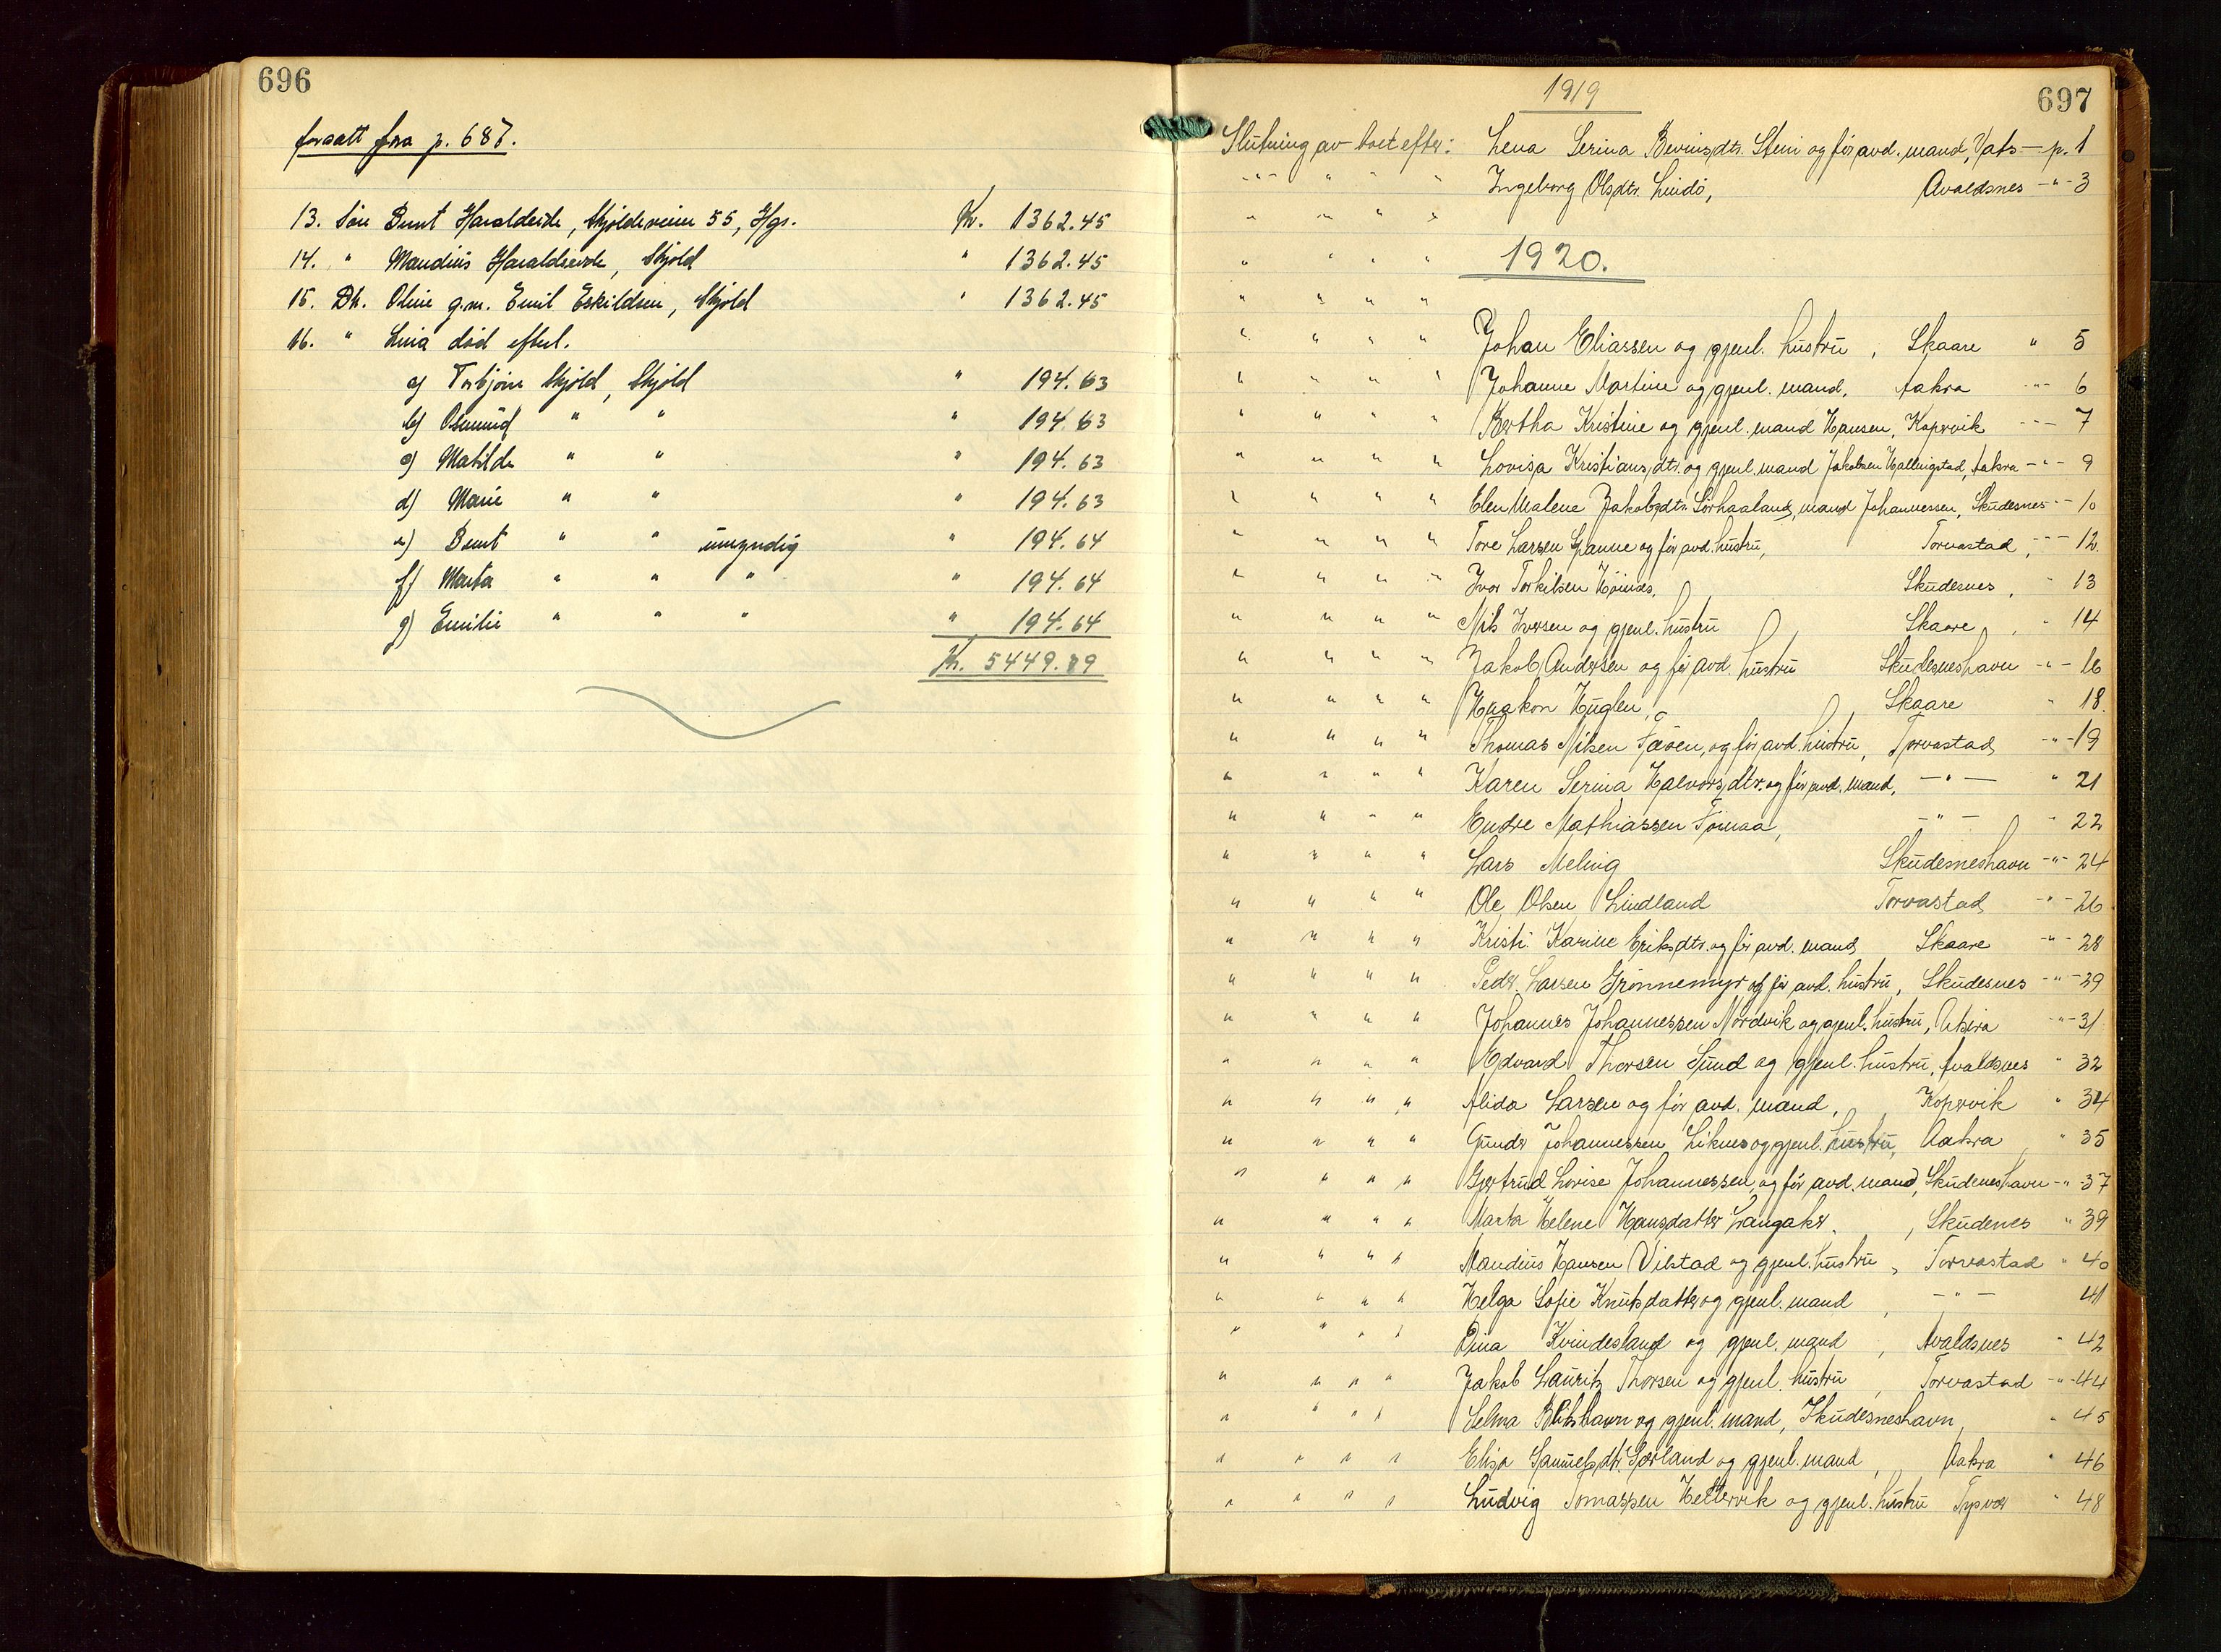 696
forsatt fra p. 687.
13. Søn Bernt Haraldseide, Skjoldaveien 55, Hgs. Kr. 1362.45
14. " Mandius Haraldseide, Skjold " 1362.45
15. Dt. Oline g.m. Emil Eskildsen, Skjold " 1362.45
16. " Lina død efterl.
a) Torbjørn Skjold, Skjold " 194.63
b) Osmund " " " 194.63
c) Matilde " " " 194.63
d) Marie " " " 194.63
e) Bernt " " umyndig " 194.64
f) Marta " " " " 194.64
g) Emilie " " " " 194.64
Kr. 5449.79
1919
697
Slutning av boet efter: Lena Serina dtr. Stein og før avd. mand, Vats — p. 1
" " " " Ingeborg Olsdtr. Lindø, Avaldsnes - " - 3
" " " "
" " " " 1920.
" " " "
" " " " Johan Eliassen og gjenl. hustru, Skaare " 5
" " " " Johanne Martine og gjenl. mand, Aakra - " - 6
" " " " Bertha Kristine og gjenl. mand Hansen, Kopervik - " - 7
" " " " Lovisa Kristiansdtr. og gjenl. mand Jakobsen Hallingstad, Aakra - " - 9
" " " " Elen Malene Jakobsdtr. Sørhaaland, mand Johannessen, Skudesnes - " - 10
" " " " Tore Larsen Spanne og før avd. hustru, Torvastad, - " - 12
" " " " Ivar Torkilsen Skudesnes, " 13
" " " " Nils Iversen og gjenl. hustru, Skaare, " 14
" " " " Jakob Andersen og før avd. hustru Skudesneshavn - " - 16
" " " " Haakon Huglen, Skaare " 18
" " " " Thomas Nilsen Fæøen, og før avd. hustru, Torvastad - " - 19
" " " " Karen Serina Halvorsdtr. og før avd. mand, — " — " 21
" " " " Endre Mathiassen — " — " 22
" " " " Lars Meling Skudesneshavn - " - 24
" " " " Ole Olsen Lindland Torvastad - " - 26
" " " " Kristi Karine Eriksdtr. og før avd. mand Skaare - " - 28
" " " " Peder Larsen Grønnemyr og før avd. hustru, Skudesnes - " - 29
" " " " Johannes Johannessen Nordvik og gjenl. hustru, Utsira - " - 31
" " " " Edvard Thorsen Sund og gjenl. hustru, Avaldsnes " 32
" " " " Alida Larsen og før avd. mand, Kopervik " 34
" " " " Gunder Johannessen Liknes og gjenl. hustru, Aakra " 35
" " " " Gjertrud Lovise Johannessen, og før avd. mand, Skudeneshavn - " - 37
" " " " Marta Helene Hansdatter Langaker, Skudenes " 39
" " " " Mandius Hansen Vikstad og gjenl. hustru, Torvastad " 40
" " " " Helga Sofie Knutsdatter og gjenl. mand, — " — 41
" " " " Dina Kvindesland og gjenl. mand, Avaldsnes " 42
" " " " Jakob Lauritz Thorsen og gjenl. hustru, Torvastad - " - 44
" " " " Selma og gjenl. mand, Skudesneshavn, " 45
" " " " Elisa Samuelsdtr. og gjenl. mand, Aakra " 46
" " " " Ludvig Tomassen Hettervik og gjenl. hustru Tysvær " 48